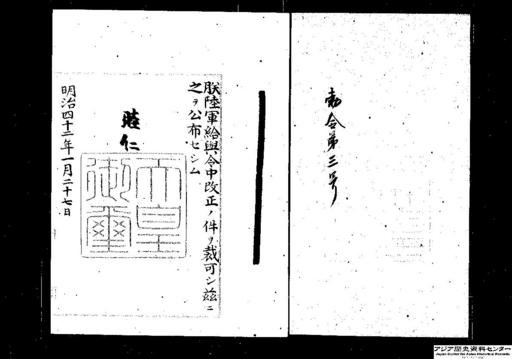 勅令第三号
朕陸軍給與令中改正ノ件ヲ裁可シ茲ニ
之ヲ公布セシム
睦仁
天皇
御璽
明治四十二年一月二十七日
アジア歴史資料センター
Japan Center for Asian Historical Records